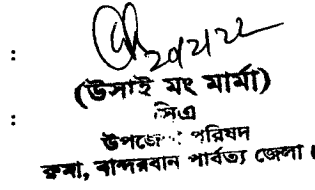 :
২০/২/২২
(উসাই মং মার্মা)
: সিএ
উপজেলা পরিষদ
রুমা, বান্দরবান পার্বত্য জেলা।